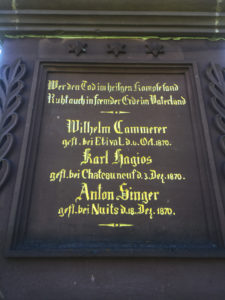 Wer den Tod im heilgen Kampfe fand
Ruht auch in fremder Erde im Vaterland
Wilhelm Cammerer
gest. bei Etival d. 6. Oct. 1870.
Karl Hagios
gest. bei Chateauneuf d. 3. Dez. 1870.
Anton Singer
gest. bei Nuits d. 18. Dez. 1870.